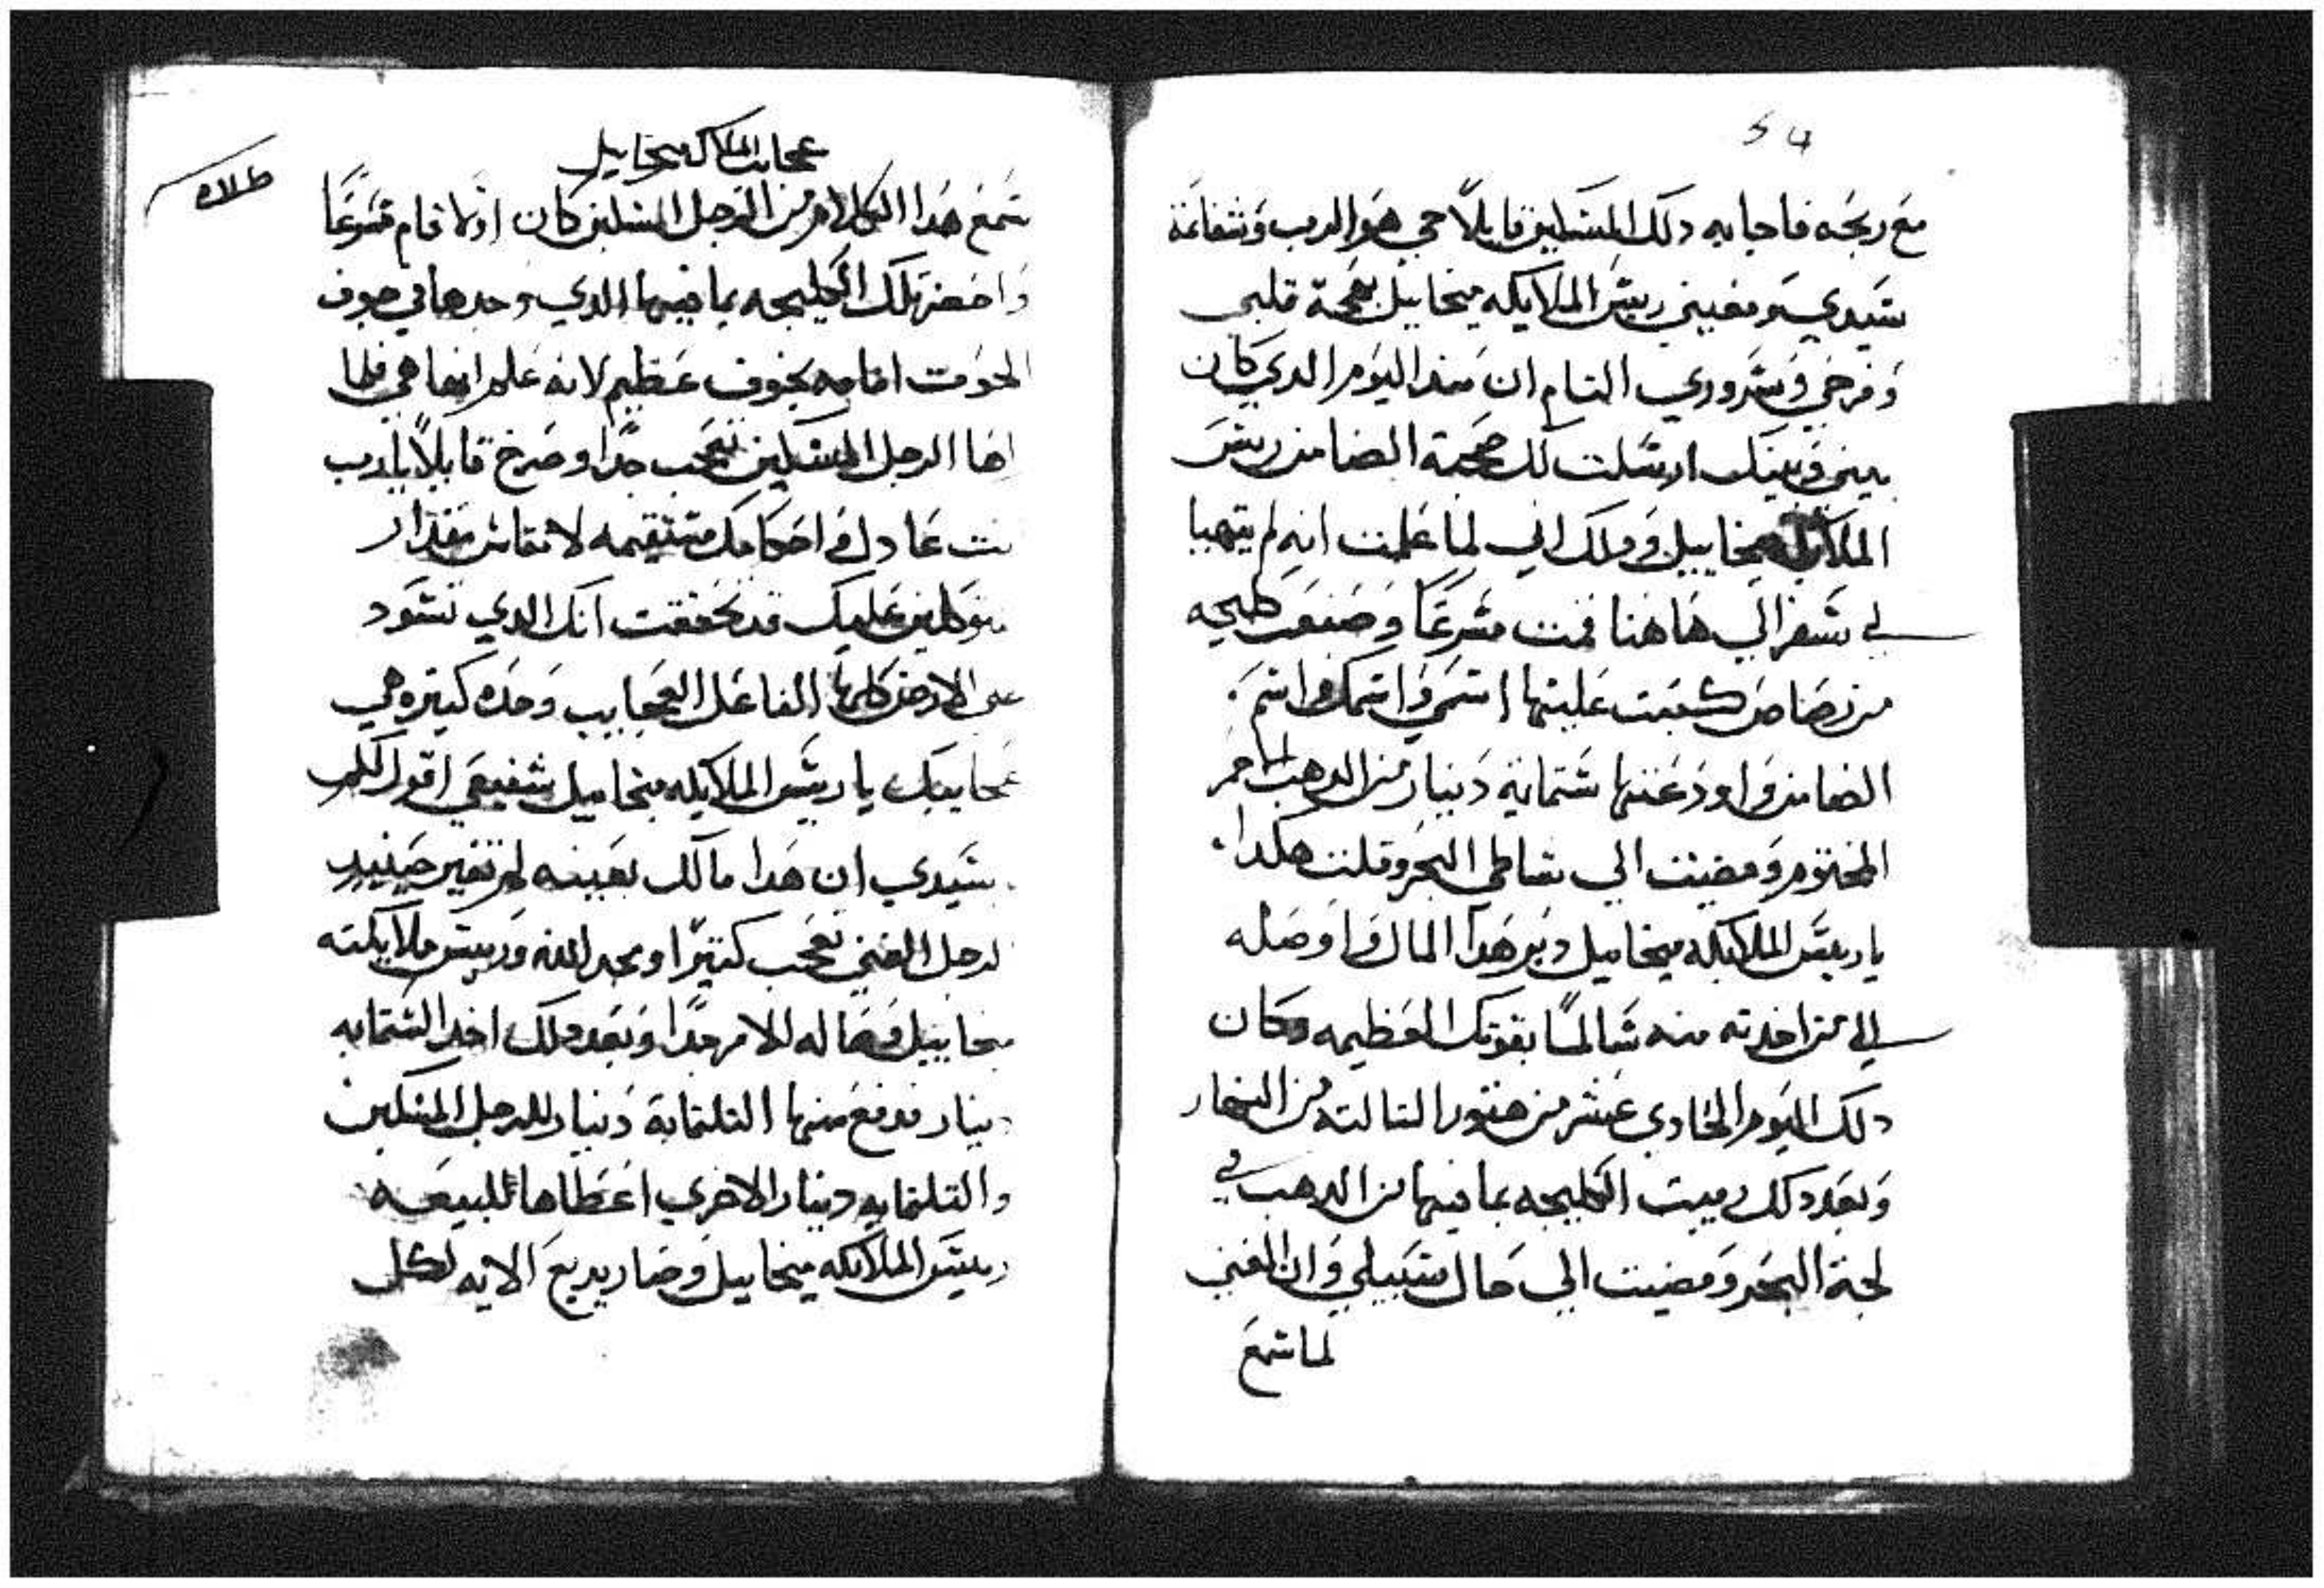 54
مع ربحه فاجابه دلك المسكين قايلًا حي هو الرب وشفاعة
سيدي ومعيني ريس الملايكه ميخاييل بهجة قلبي
وفرحي وسروري التام ان مند اليوم الدي كان
بيني وبينك ارسلت لك صحبة الضامن ريس
الملايكه ميخاييل ودلك اني لما علمت انه لم يتهيا
لي سفر الي هاهنا قمت مسرعًا وصنعت كليجه
من رصاص كتبت عليها اسمي واسمك واسم
الضامن واودعتها ستماية دينار من الدهب الاحمر
المختوم ومضيت الي شاطي البحر وقلت هكدا
يا ريس الملايكه ميخاييل دبر هدا المال واوصله
الي من اخدته منه سالمًا بقوتك العظيمه وكان
دلك اليوم الحادي عشر من هتور التالته من النهار
وبعد دلك رميت الكليجه بما فيها من الدهب في
لجة البحر ومضيت الي حال سبيلي وان الغني
لما سمع
عجايب الملاك ميخاييل
سمع هدا الكلام من الرجل المسكين كان اولا قام مسرعًا
واحضر تلك الكليجه بما فيها الدي وجدها في جوف
الحوت امامه بخوف عظيم لانه علم انها هي فلما
راها الرجل المسكين تعجب جدًا وصرخ قايلًا يا رب
انت عادل واحكامك مستقيمه
متوكلين عليك قد تحققت انك الدي تسود
علي الارض كلها الفاعل العجايب وحده كتيره هي
عجايبك يا ريس الملايكه ميخاييل شفيعي اقول لكم
يا سيدي ان هدا مالك بعينه لم تغير حينيد
الرجل الغني تعجب كتيرًا ومجد الله وريس ملايكته
ميخاييل وبعد دلك اخد الستمايه
دينار فدفع منها التلتماية دينار للرجل المسكين
والتلتمايه دينار الاخري اعطاها للبيعه
ريس الملايكه ميخاييل وصار يديع الايه لكل